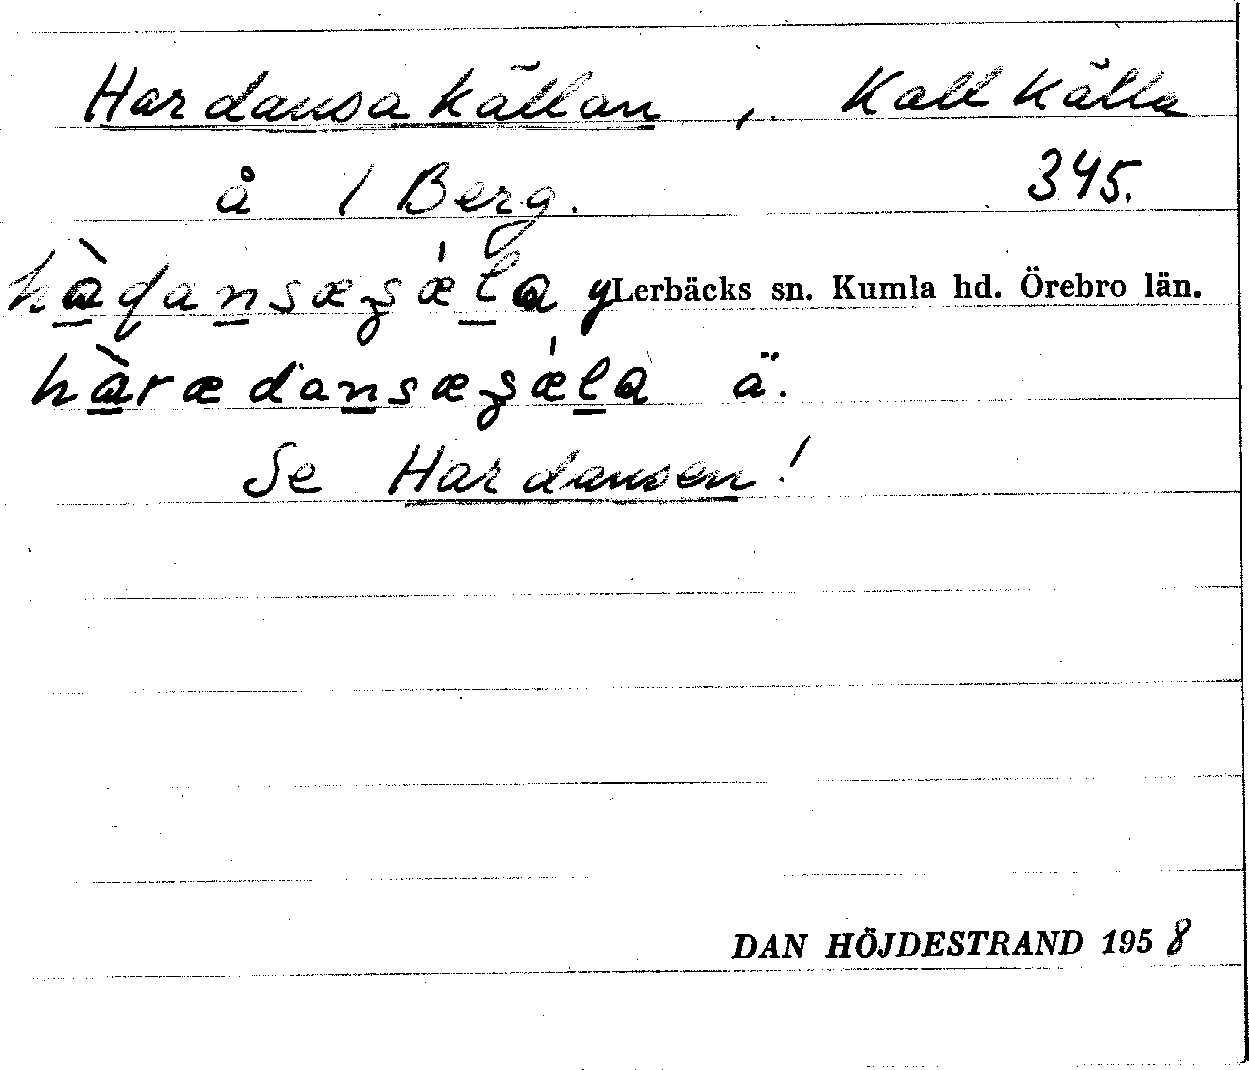 Hardansakällan, Kallkälla
å 1 Berg. 345.
hàɖansæʒǽla y Lerbäcks sn. Kumla hd. Örebro län.
hàrædansæʒǽla ä.
Se Hardansen!
DAN HÖJDESTRAND 1958